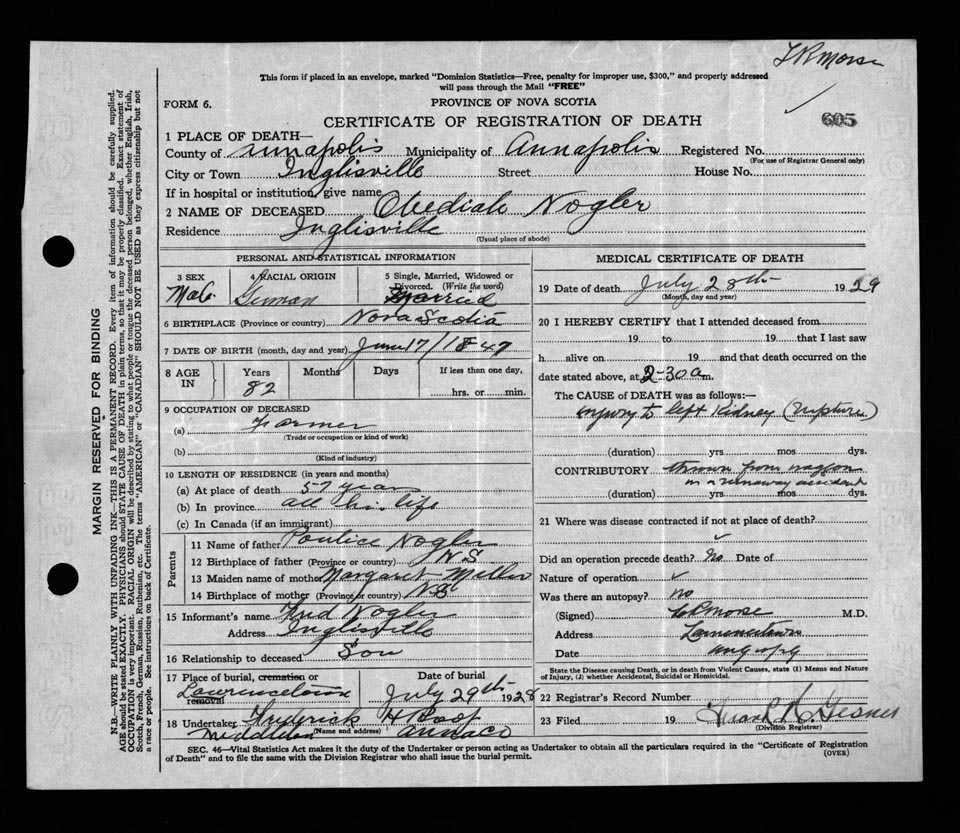 L R Morse
This form if placed in an envelope, marked "Dominion Statistics—Free, penalty for improper use, $300," and properly addressed
will pass through the Mail "FREE"
FORM 6.
PROVINCE OF NOVA SCOTIA
CERTIFICATE OF REGISTRATION OF DEATH
605
1 PLACE OF DEATH—
County of Annapolis Municipality of Annapolis Registered No.
(For use of Registrar General only)
City or Town Inglisville Street House No.
If in hospital or institution, give name
2 NAME OF DECEASED Obediah Nogler
Residence Inglisville
(Usual place of abode)
PERSONAL AND STATISTICAL INFORMATION
3 SEX
Male
4 RACIAL ORIGIN
German
5 Single, Married, Widowed or
Divorced. (Write the word)
Married
6 BIRTHPLACE (Province or country) Nova Scotia
7 DATE OF BIRTH (month, day and year) June 17/1847
8 AGE
IN
Years
82
Months
Days
If less than one day,
hrs. or min.
9 OCCUPATION OF DECEASED
(a) Farmer
(Trade or occupation or kind of work)
(b)
(Kind of industry)
10 LENGTH OF RESIDENCE (in years and months)
(a) At place of death 57 years
(b) In province all his life
(c) In Canada (if an immigrant)
Parents
11 Name of father Nogler
12 Birthplace of father (Province or country) N S
13 Maiden name of mother Margaret Miller
14 Birthplace of mother (Province or country) N S
15 Informant's name Fred Nogler
Address Inglisville
16 Relationship to deceased Son
17 Place of burial, cremation or
removal
Lawrencetown
Date of burial
July 29th 1928
18 Undertaker Frederick H Roop
Middleton (Name and address) Anna Co
MEDICAL CERTIFICATE OF DEATH
19 Date of death July 28th 1929
(Month, day and year)
20 I HEREBY CERTIFY that I attended deceased from
19 to 19 that I last saw
h alive on 19 and that death occurred on the
date stated above, at 2-30 a m.
The CAUSE of DEATH was as follows:—
injury to left Kidney (rupture)
(duration) yrs. mos. dys.
CONTRIBUTORY thrown from waggon
in a runaway accident
(duration) yrs. mos. dys.
21 Where was disease contracted if not at place of death?
Did an operation precede death? No Date of
Nature of operation
Was there an autopsy? no
(Signed) L R Morse M.D.
Address Lawrencetown
Date
State the Disease causing Death, or in death from Violent Causes, state (1) Means and Nature
of Injury, (2) whether Accidental, Suicidal or Homicidal.
22 Registrar's Record Number
23 Filed 19 Gesner
(Division Registrar)
SEC. 46—Vital Statistics Act makes it the duty of the Undertaker or person acting as Undertaker to obtain all the particulars required in the "Certificate of Registration
of Death" and to file the same with the Division Registrar who shall issue the burial permit.
(OVER)
MARGIN RESERVED FOR BINDING
N.B.—WRITE PLAINLY WITH UNFADING INK—THIS IS A PERMANENT RECORD. Every item of information should be carefully supplied.
AGE should be stated EXACTLY. PHYSICIANS should STATE CAUSE OF DEATH in plain terms, so that it may be properly classified. Exact statement of
OCCUPATION is very important. RACIAL ORIGIN will be described by stating to what people or tongue the deceased person belonged, whether English, Irish,
Scotch, French, German, Russian, Ruthenian, etc. The terms "AMERICAN" or "CANADIAN" SHOULD NOT BE USED as they express citizenship but not
a race or people. See instructions on back of Certificate.